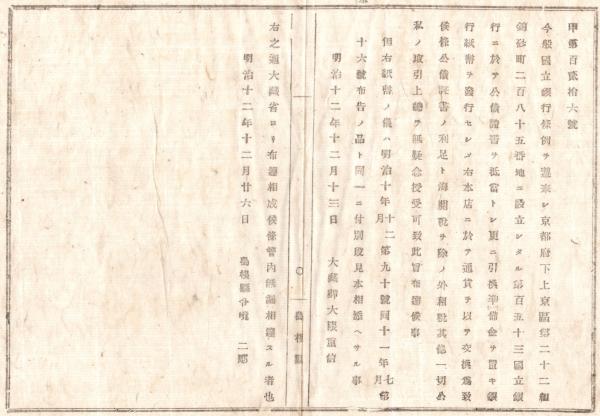 甲第百貳拾六號
今般國立銀行條例ヲ遵奉シ京都府下上京區第二十二組
町二百八十五番地ニ設立シタル第百五十三國立銀
行ニ於テ公債證書ヲ抵當トシ更ニ引換準備金ヲ置キ銀
行紙幣ヲ發行セシメ右本店ニ於テ通貨ヲ以テ交換為致
候條公債證書ノ利足ト海關稅ヲ除ノ外租稅其他一切公
私ノ取引上總テ無疑念授受可致此旨布達候事
但右紙幣ノ儀ハ明治十年十二月第九十號同十一年七月第
十六號布告ノ品ト同一ニ付別段見本相添ヘサル事
明治十二年十二月十三日 大藏卿大隈重信
島根縣
右之通大藏省ヨリ布達相成候條管内無漏相達スル者也
明治十二年十二月廿六日 島根縣令境 二郎